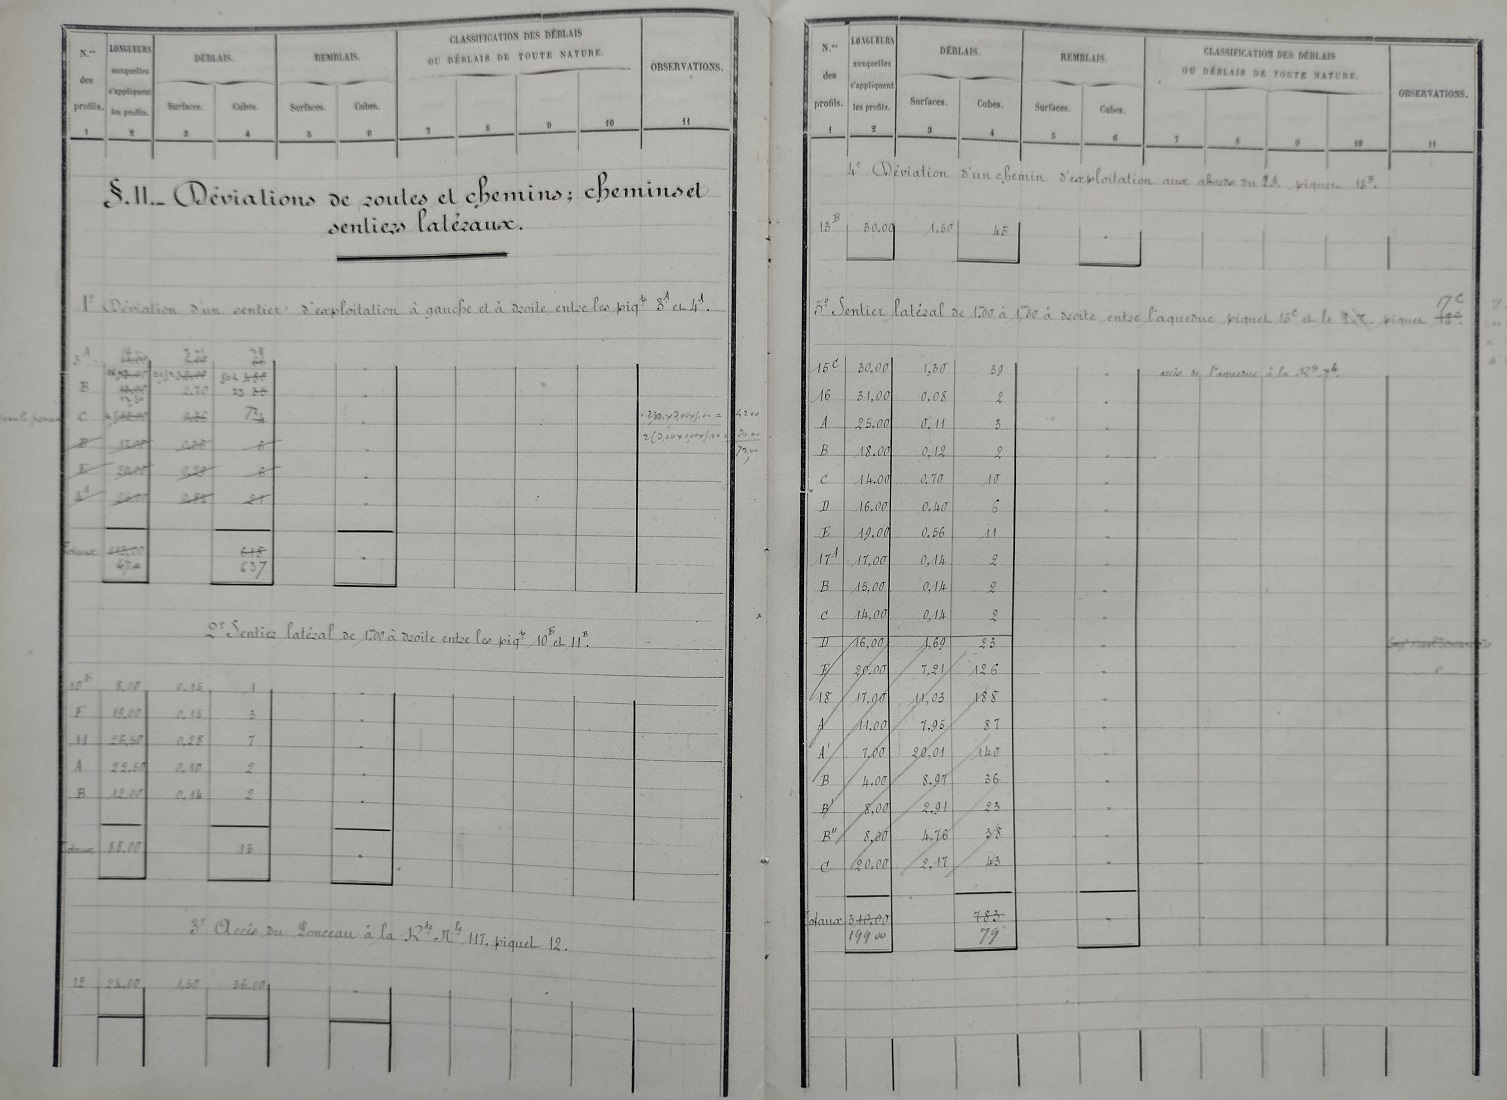 N.os des profils. LONGUEURS auxquelles s'appliquent les profils. DÉBLAIS. REMBLAIS. CLASSIFICATION DES DÉBLAIS OU DÉBLAIS DE TOUTE NATURE. OBSERVATIONS.
Surfaces. Cubes. Surfaces. Cubes.
1 2 3 4 5 6 7 8 9 10 11
§. II._ Déviations de routes et chemins; chemins et
sentiers latéraux.
1° Déviation d'un sentier d'exploitation à gauche et à droite, entre les piqts 3A et 4A.
3A
B
C
D 8
E 20.00 8
4A 21
Totaux 618
47.00 637
2° Sentier latéral de 1,00 à droite entre les piqts 10E et 11B.
10E 8.00 0.15 1
F 19.00 0.15 3
11 26.50 0.28 7
A 22.50 0.10 2
B 12.00 0.14 2
Totaux 88.00 15
3° Accès du Ponceau à la Rte Nle 117, piquet 12.
12 24.00 1,50 36.00
N.os des profils. LONGUEURS auxquelles s'appliquent les profils. DÉBLAIS. REMBLAIS. CLASSIFICATION DES DÉBLAIS OU DÉBLAIS DE TOUTE NATURE. OBSERVATIONS.
Surfaces. Cubes. Surfaces. Cubes.
1 2 3 4 5 6 7 8 9 10 11
4° Déviation d'un chemin d'exploitation aux abords du piquet 13B.
13B 30.00 1.50 45
5° Sentier latéral de 1,00 à 1,50 à droite entre l'aqueduc piquet 15C et le piquet 18C. 17C
15C 30,00 1,30 39 accès de l'aqueduc à la Rte Nle.
16 31,00 0.08 2
A 25.00 0,11 3
B 18.00 0,12 2
C 14.00 0.70 10
D 16.00 0.40 6
E 19.00 0.56 11
17A 17.00 0,14 2
B 15,00 0,14 2
C 14,00 0,14 2
D 16,00 1.69 23
E 20.00 7,21 126
18 17.00 11,03 188
A 11.00 7.95 87
A' 7.00 20,01 140
B 4.00 8.97 36
B' 8,00 2.91 23
B'' 8,00 4.76 38
C 20.00 2.17 43
Totaux 310.00 783
199 00 79